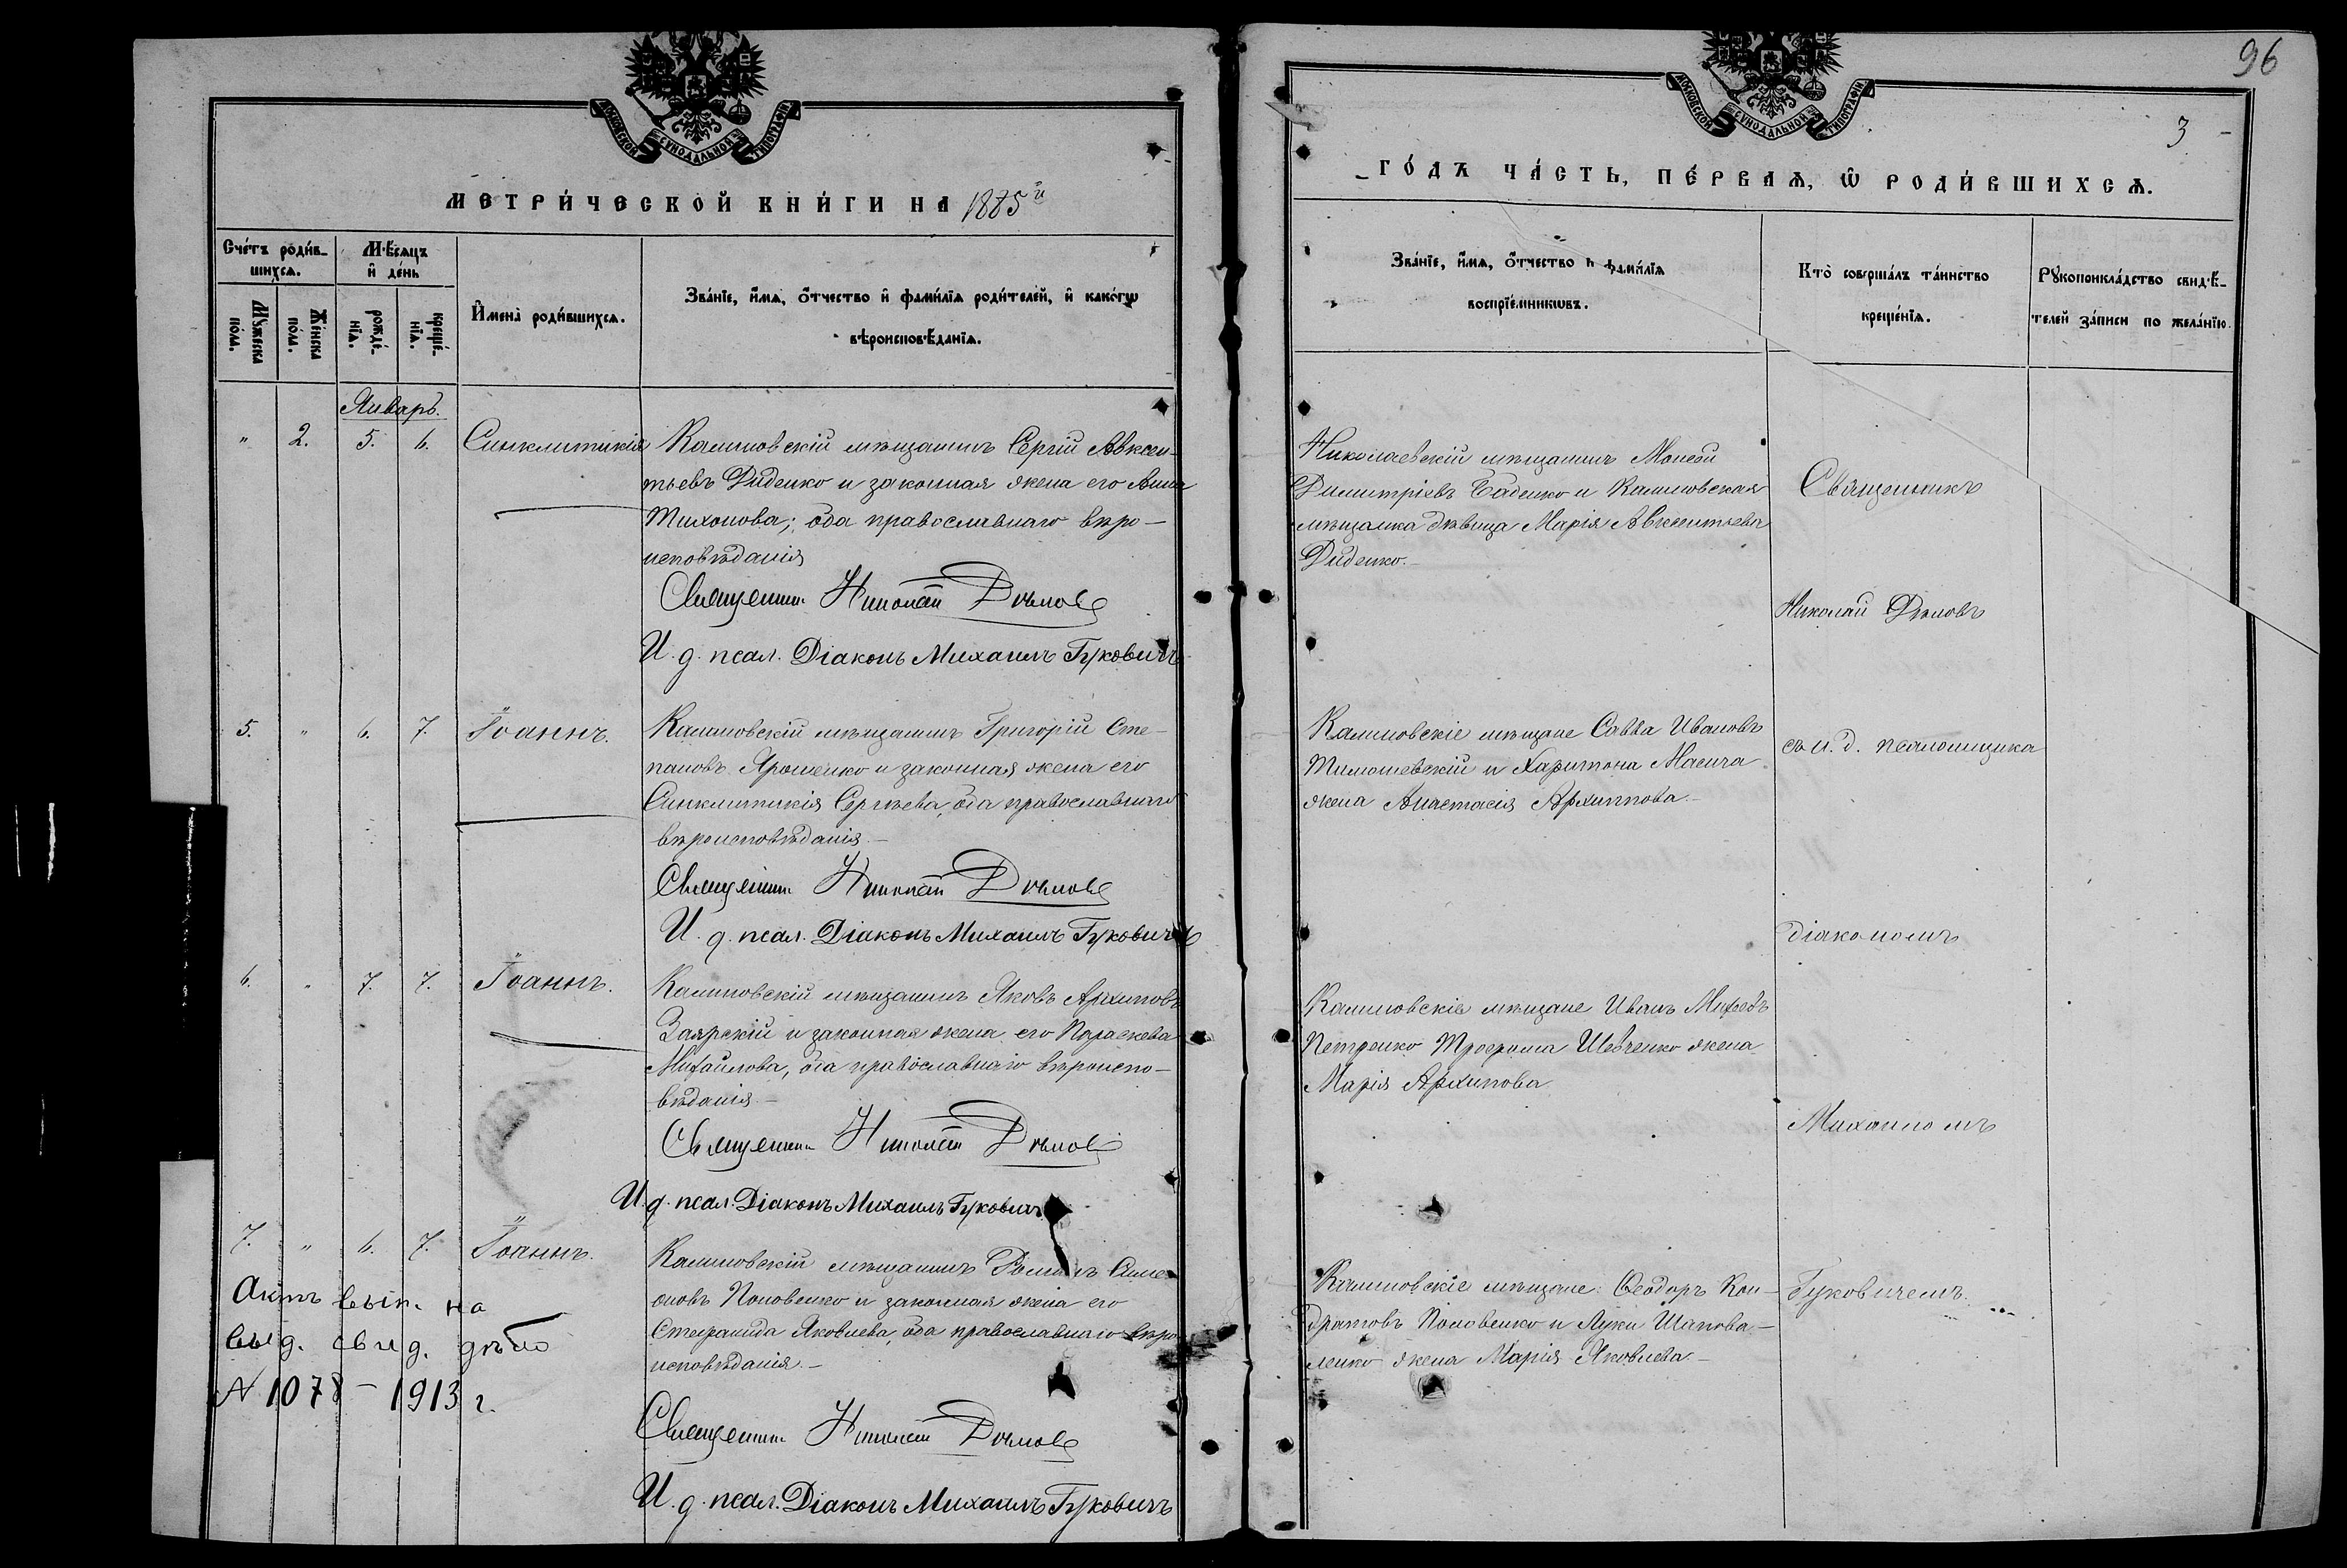 МОСКОВСКОЙ СѴНОДАЛЬНОЙ ТИПОГРАФІИ
МЕТРИ́ЧЕСКОЙ КНИ́ГИ НА 1885й
Сче́тъ роди́в-
шихсѧ.
Мѣ́сѧцъ
и҆ де́нь
Мꙋ́жеска
по́ла.
Же́нска
по́ла.
рожде́-
нїѧ.
креще́-
нїѧ.
И҆мена̀ роди́вшихсѧ.
Зва́нїе, и҆́мѧ, ѻ҆́тчество и҆ фами́лїѧ роди́телей, и҆ како́гѡ
вѣроисповѣ́данїѧ.
Январь.
" 2. 5. 6. Синклитикія
Калиновскій мѣщанинъ Сергій Авксен-
тьевъ Диденко и законная жена его Анна
Тихонова; оба православнаго вѣро-
исповѣданія
Священникъ Николай Дѣловъ
И. д. псал. Діаконъ Михаилъ Гуковичъ
5. " 6. 7. Іоаннъ.
Калиновскій мѣщанинъ Григорій Сте-
пановъ Ярошенко и законная жена его
Синклитикія Сергѣева, оба православнаго
вѣроисповѣданія.-
Священникъ Николай Дѣловъ
И. д. псал. Діаконъ Михаилъ Гуковичъ
6. " 7. 7. Іоаннъ.
Калиновскій мѣщанинъ Яковъ Архиповъ
Заярскій и законная жена его Параскева
Михайлова, оба православнаго вѣроиспо-
вѣданія.-
Священникъ Николай Дѣловъ
И. д. псал. Діаконъ Михаилъ Гуковичъ
7. " 6. 7. Іоаннъ.
Калиновскій мѣщанинъ Романъ Симе-
оновъ Половенко и законная жена его
Стефанида Яковлева, оба православнаго вѣро-
исповѣданія.-
Актъ вып. на
выд. свид. дѣло
N 1078 - 1913 г.
Священникъ Николай Дѣловъ
И. д. псал. Діаконъ Михаилъ Гуковичъ
96
МОСКОВСКОЙ СѴНОДАЛЬНОЙ ТИПОГРАФІИ
3
ГО́ДЪ ЧА́СТЬ, ПЕ́РВАѦ, Ѡ҆ РОДИ́ВШИХСѦ.
Зва́нїе, и҆́мѧ, ѻ҆́тчество и҆ фами́лїѧ
воспрїе́мникѡвъ.
Кто̀ соверша́лъ та́инство
креще́нїѧ.
Рꙋкоприкла́дство свидѣ́-
телей за́писи по жела́нїю.
Николаевскій мѣщанинъ Моисей
Димитріевъ Баденко и Калиновская
мѣщанка дѣвица Марія Авксентьева
Диденко.-
Священникъ
Николай Дѣловъ
Калиновскіе мѣщане Савва Ивановъ
Тимошевскій и Харитона Масича
жена Анастасія Архиппова.-
съ и. д. псаломщика
діакономъ
Калиновскіе мѣщане Иванъ Михеевъ
Петренко Трофима Шевченко жена
Марія Архипова
Михаиломъ
Калиновскіе мѣщане: Ѳеодоръ Кон-
дратовъ Половенко и Луки Шапова-
ленко жена Марія Яковлева.-
Гуковичемъ.